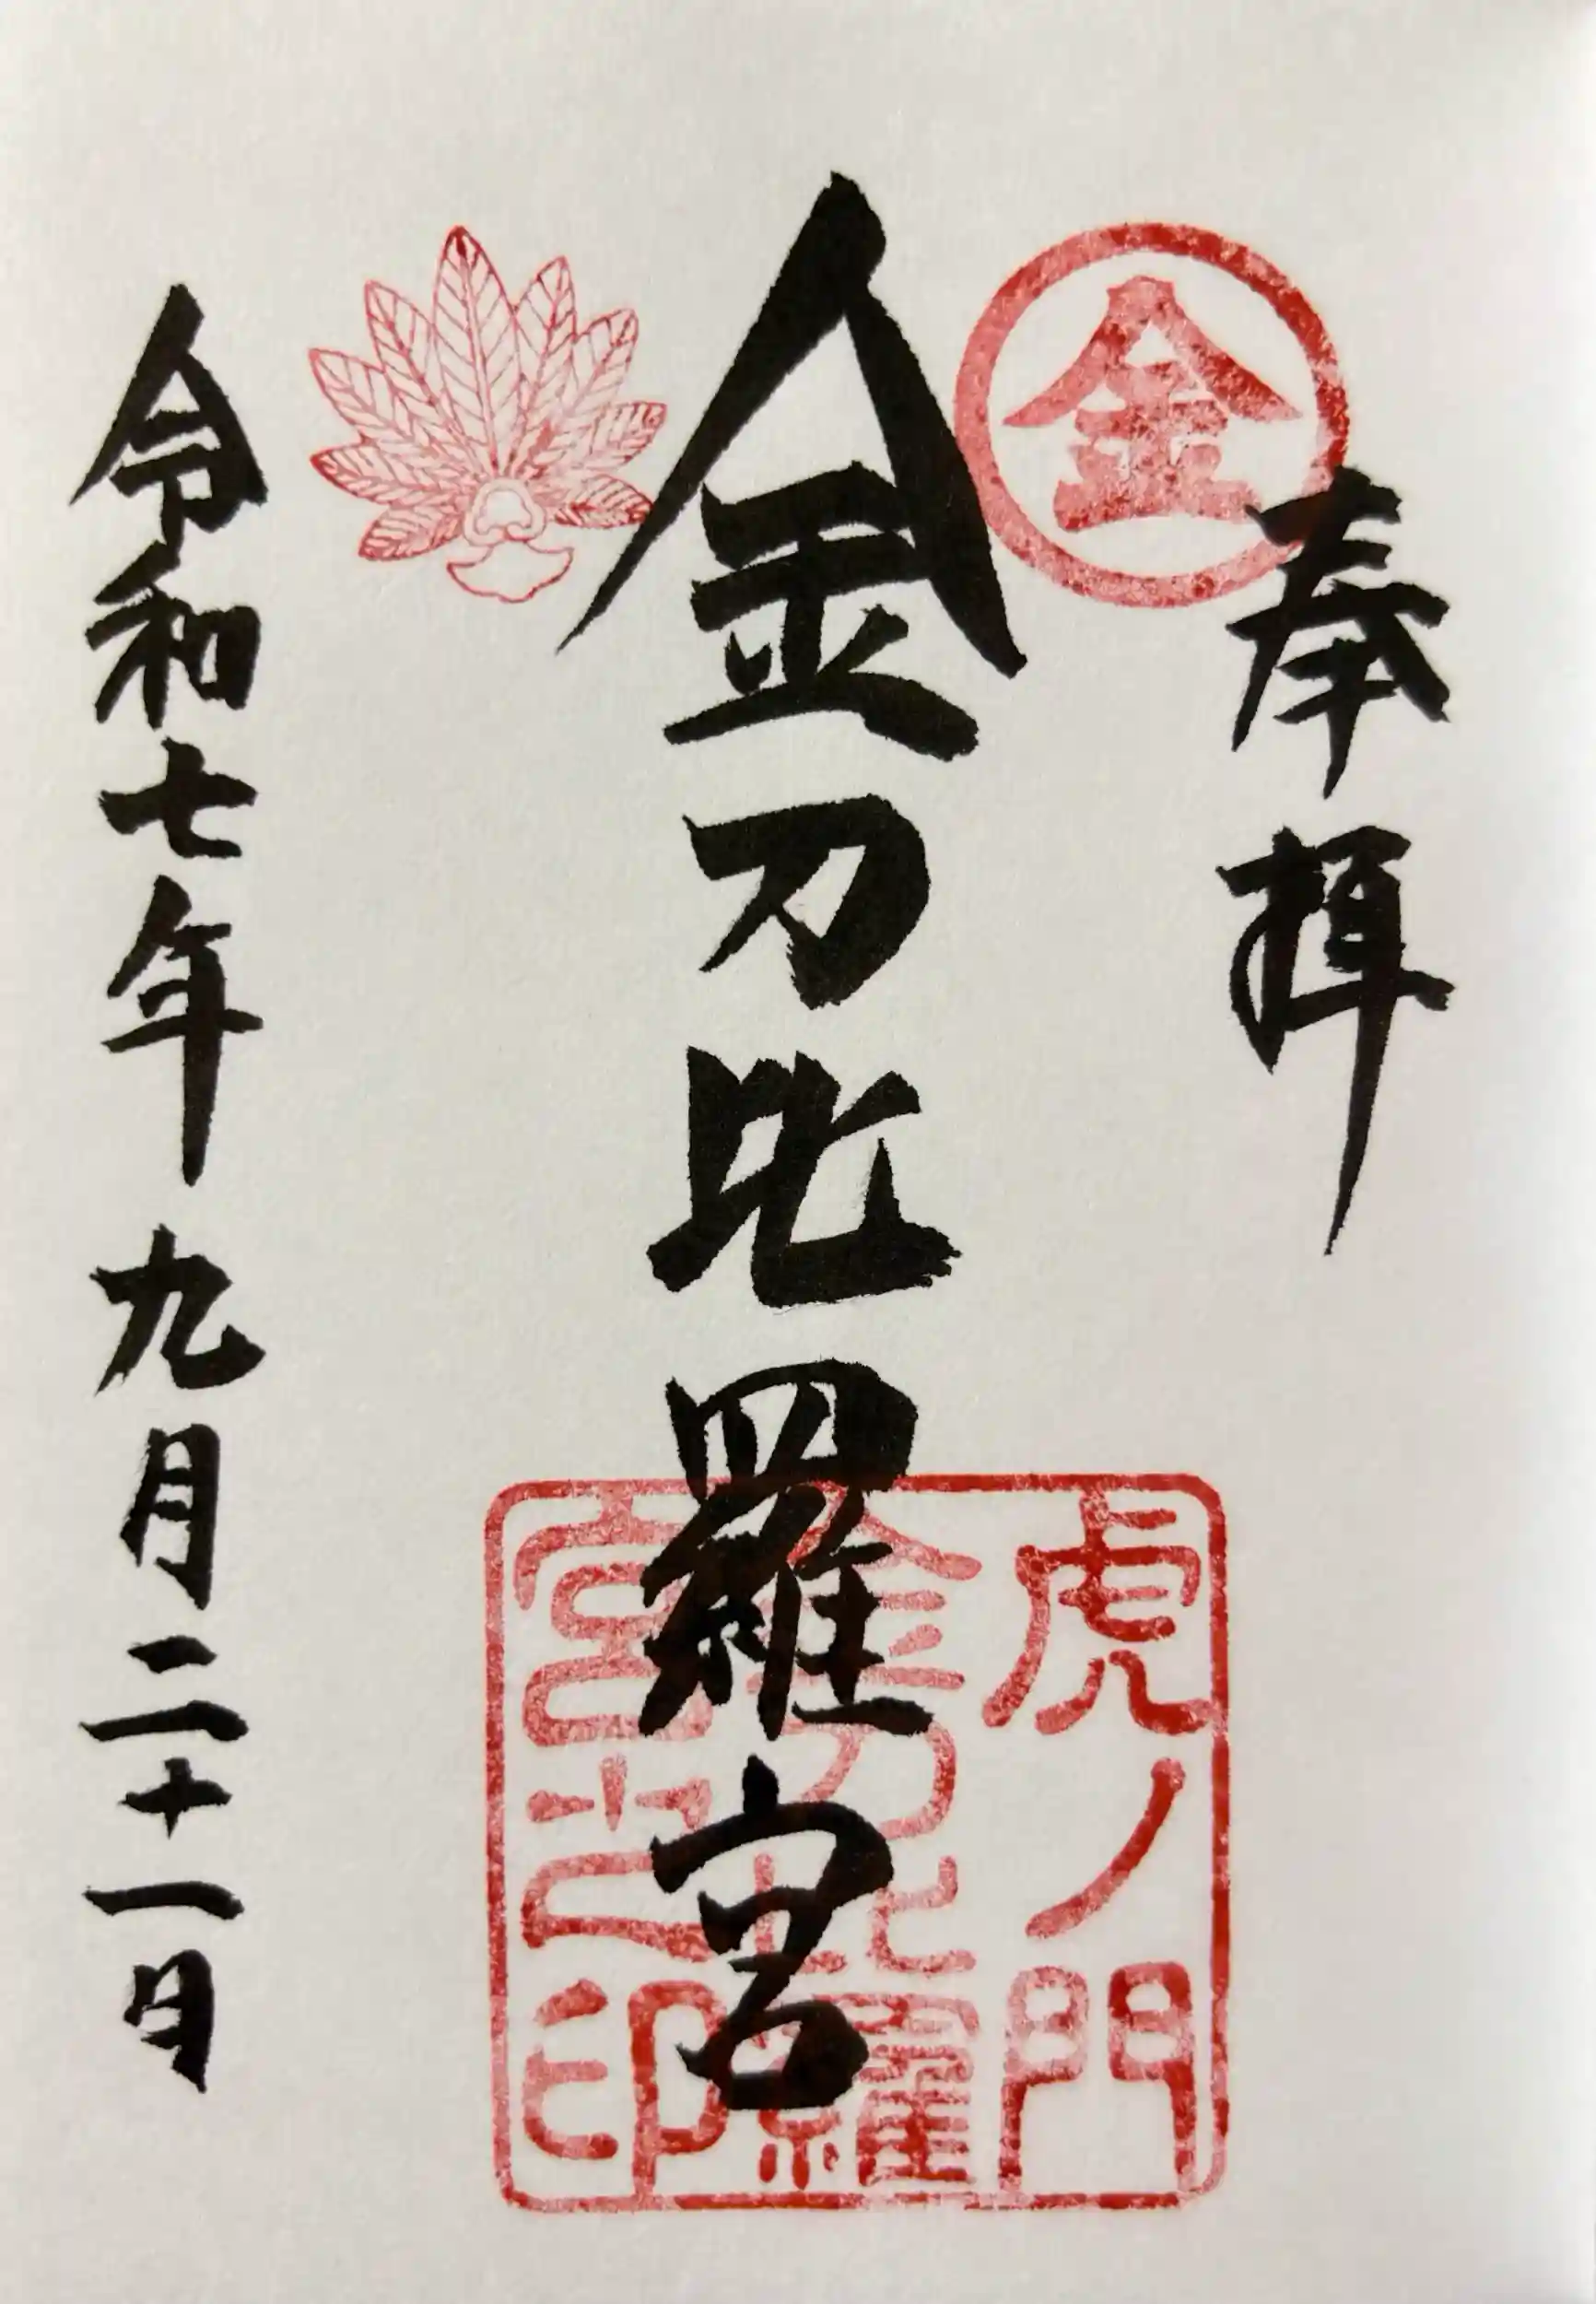 奉拝
金
金刀比羅宮
虎ノ門
金刀比羅
宮之印
令和七年 九月二十一日